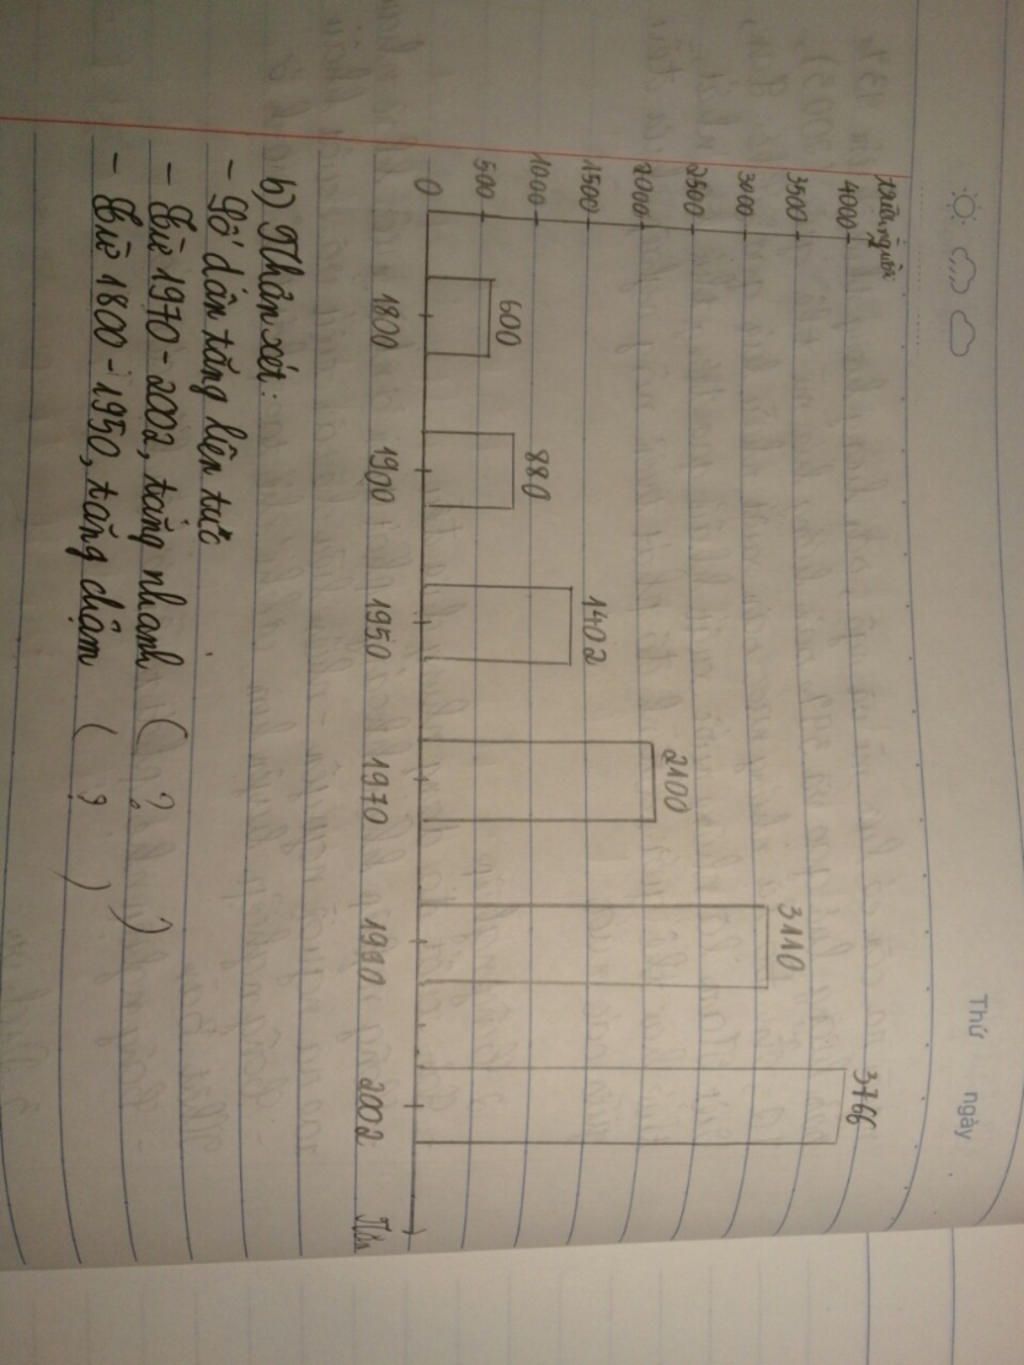 Thứ ngày
triệu người
4000
3500
3000
2500
2000
1500
1000
500
0
600
880
1402
2100
3110
3766
1800 1900 1950 1970 1990 2002
b) Nhận xét:
- Số dân tăng liên tục
- Từ 1970 - 2002, tăng nhanh ( ? )
- Từ 1800 - 1950, tăng chậm ( ? )